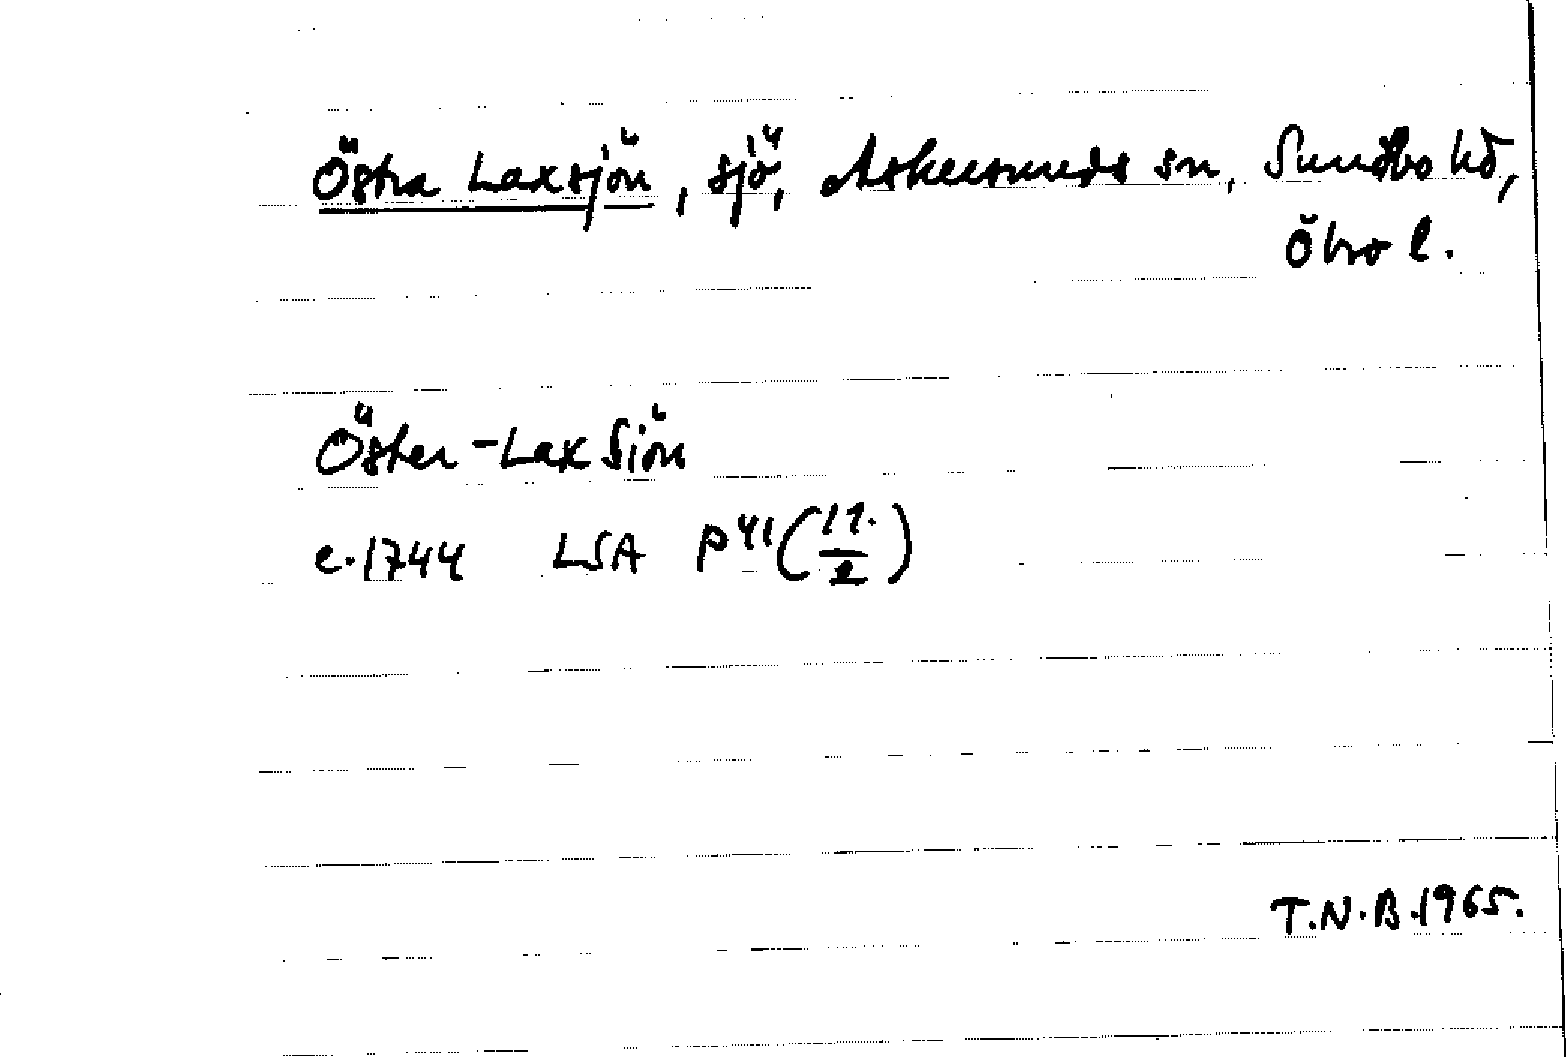 Östra Laxsjön, sjö, Askersunds sn, Sundbo hd,
Öbro l.
Öster-Lax Siön
c. 1744 LSA P 41 (17./2)
T.N.B. 1965.